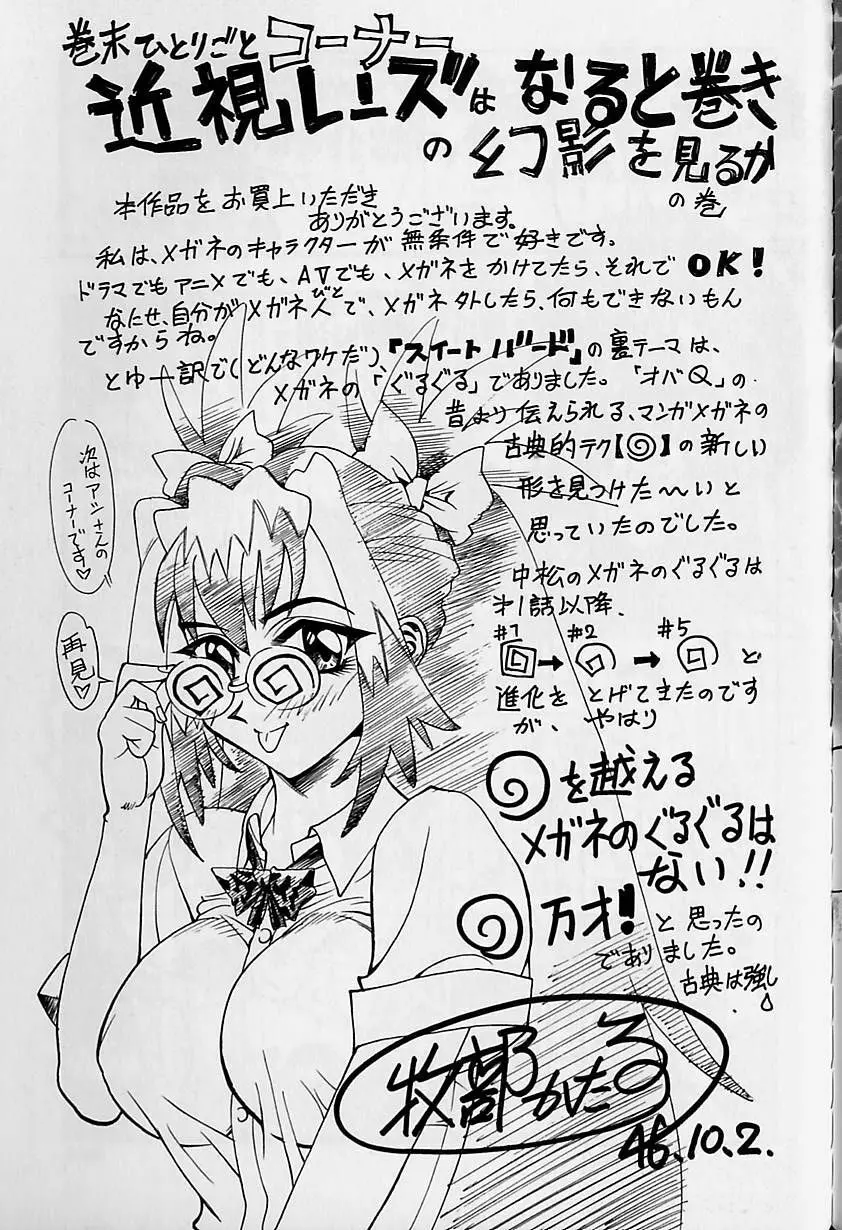 巻末ひとりごとコーナー
近視レンズはなると巻き
の幻影を見るか
の巻
本作品をお買上いただき
ありがとうございます。
私は、メガネのキャラクターが無条件で好きです。
ドラマでもアニメでも、AVでも、メガネをかけてたら、それでOK!
なたせ、自分がメガネ人びとで、メガネ外したら、何もできないもん
ですからね。
とゆー訳で(どんなワケだ)、「スイートバード」の裏テーマは、
メガネの「ぐるぐる」でありました。「オバQ」の
昔より伝えられる、マンガメガネの
古典的テク【◎】の新しい
形を見つけた〜いと
思っていたのでした。
中松のメガネのぐるぐるは
才1話以降、
#1 #2 #5
→ → と
進化をとげてきたのです
が、やはり
を越える
メガネのぐるぐるは
ない!!
万才!と思ったの
でありました。
古典は強し
次はアシさんの
コーナーです♡
再見♡
牧部かたる
46.10.2.